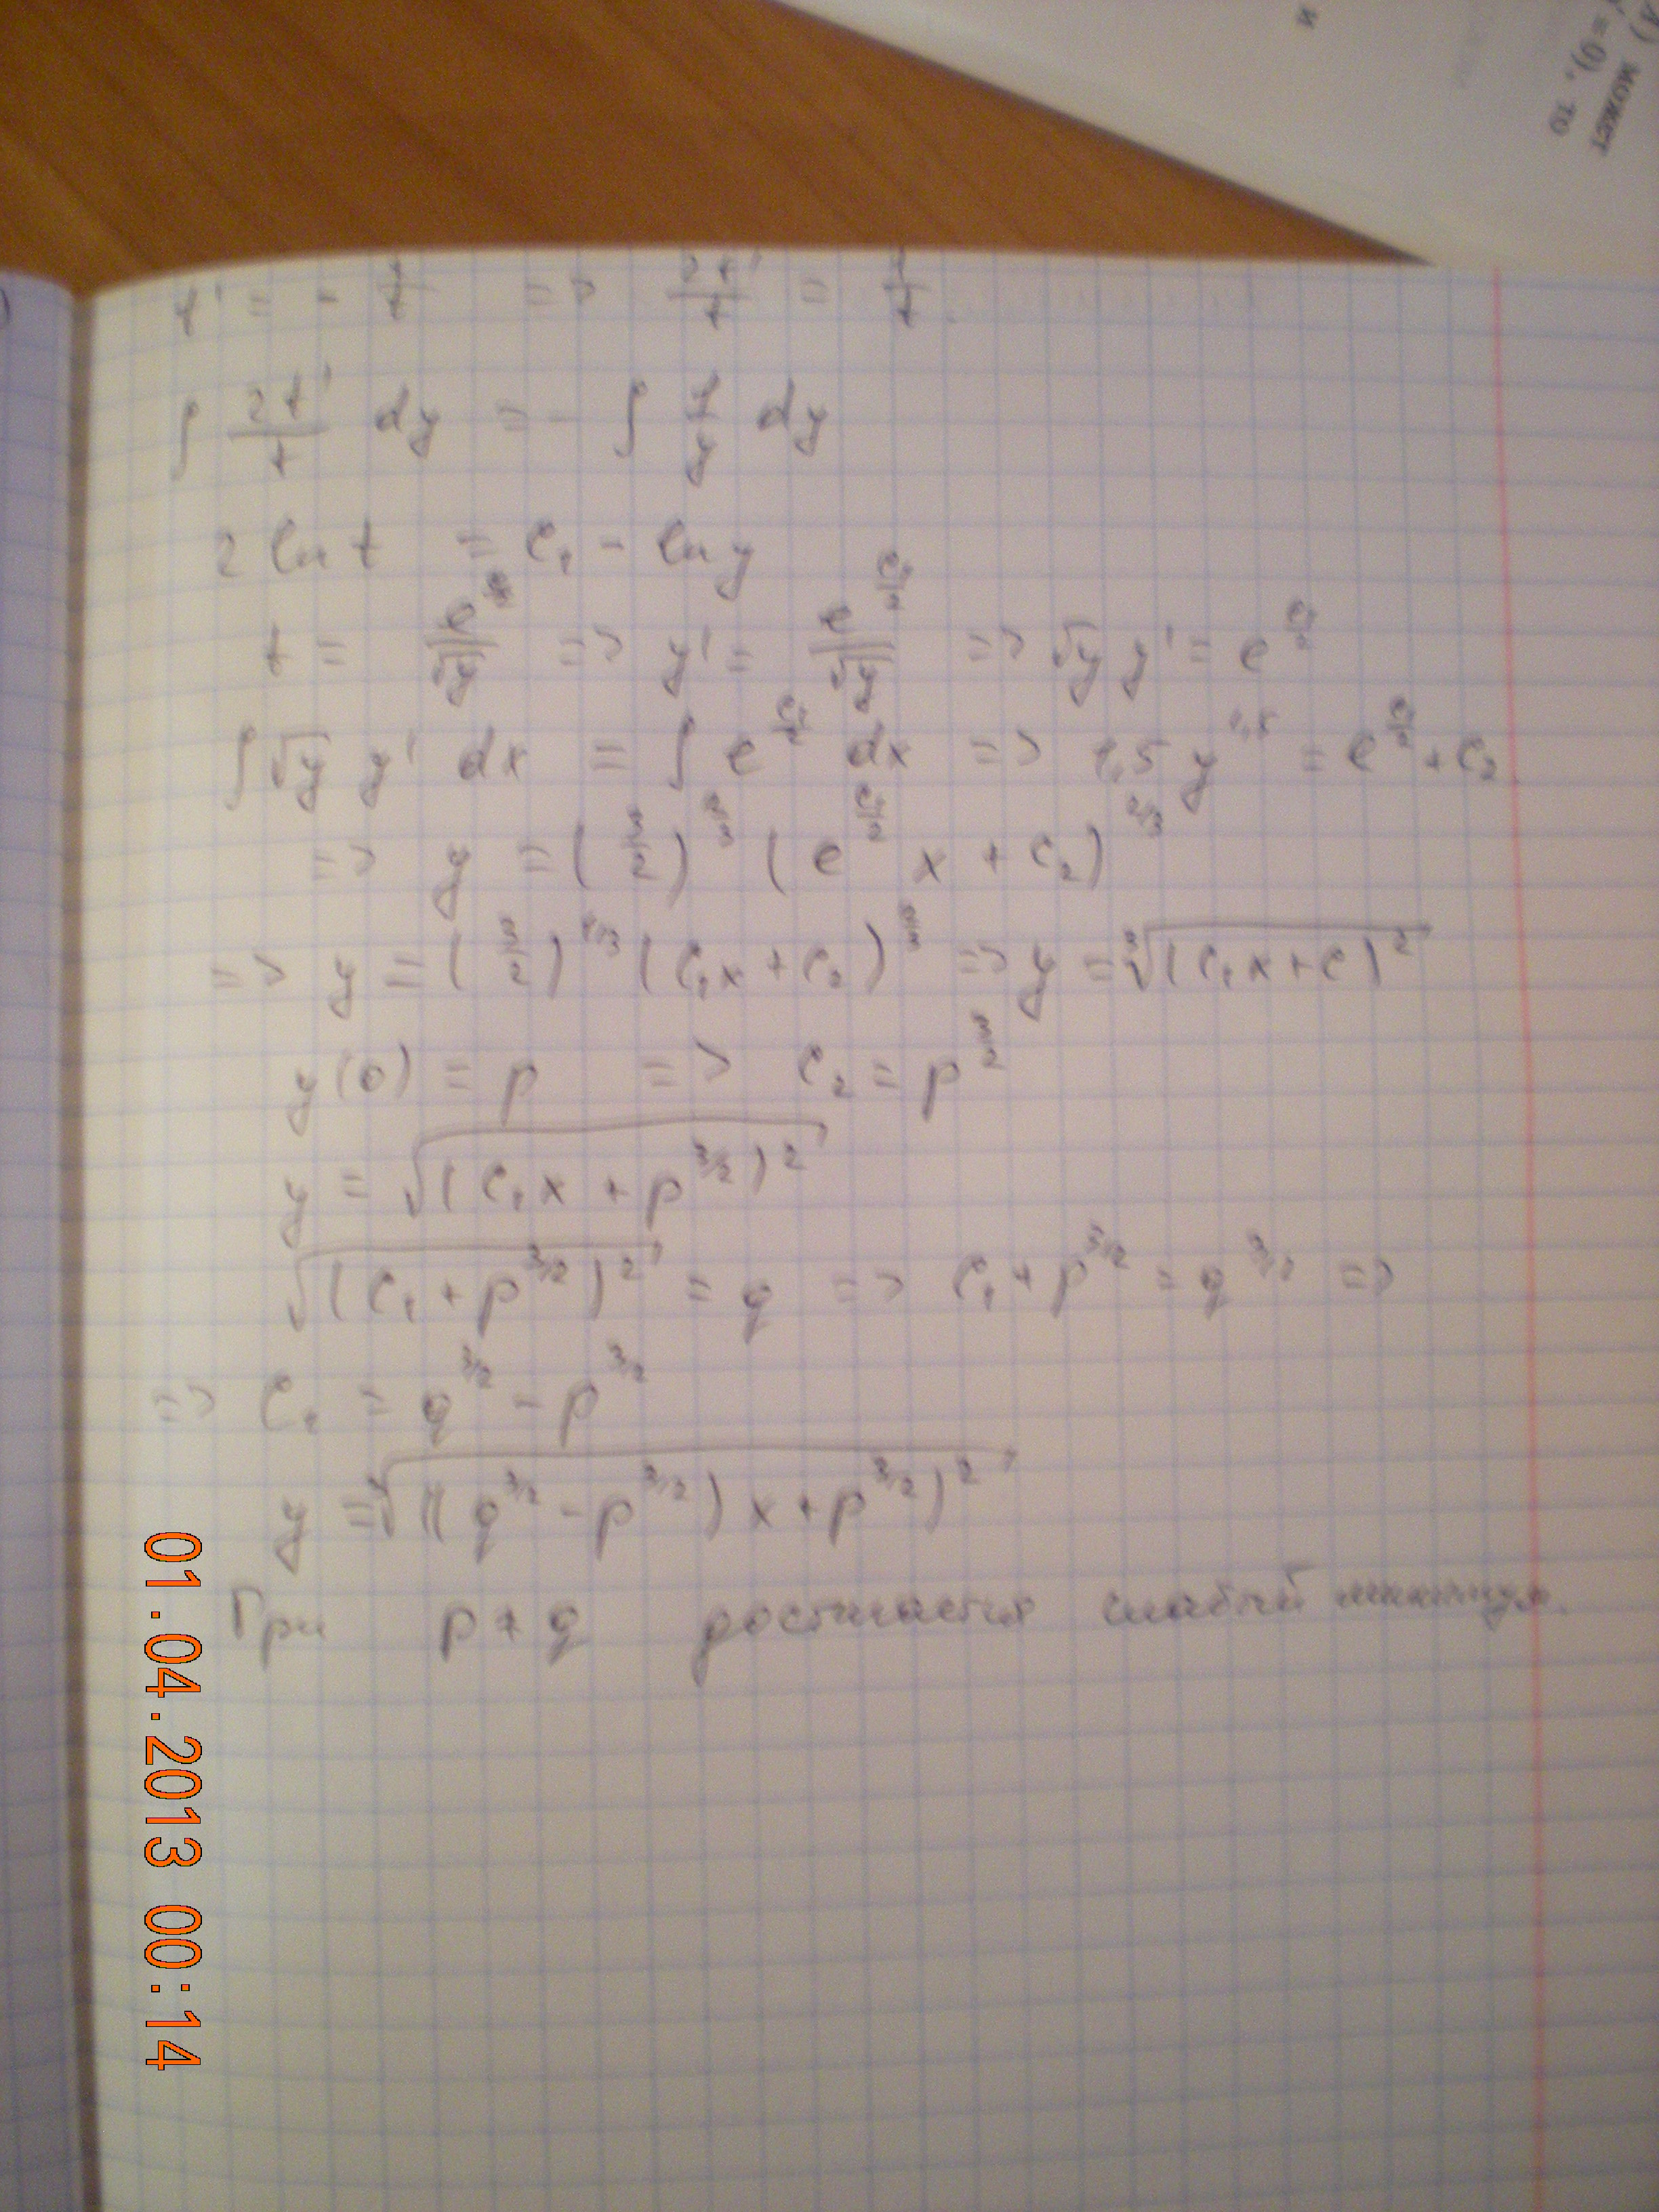 и
может
y' = 0), то
t' = - t/ => 2t'/t =
∫ 2t'/t dy = - ∫ 1/y dy
2 ln t = C₁ - ln y
t = e/√y => y' = e^(C₁/2)/√y => √y y' = e^(C₁/2)
∫ √y y' dx = ∫ e^(C₁/2) dx => 1,5 y^(1,5) = e^(C₁/2) + C₂
=> y = (3/2)^(2/3) (e^(C₁/2) x + C₂)^(2/3)
=> y = (3/2)^(2/3) (C₁x + C₂)^(2/3) => y = ∛((C₁x + C)²)
y(0) = p => C₂ = p^(3/2)
y = √((C₁x + p^(3/2))²)
√((C₁ + p^(3/2))²) = q => C₁ + p^(3/2) = q^(3/2) =>
=> C₁ = q^(3/2) - p^(3/2)
y = ∛(((q^(3/2) - p^(3/2)) x + p^(3/2))²)
При p ≠ q достигается слабый минимум.
01.04.2013 00:14